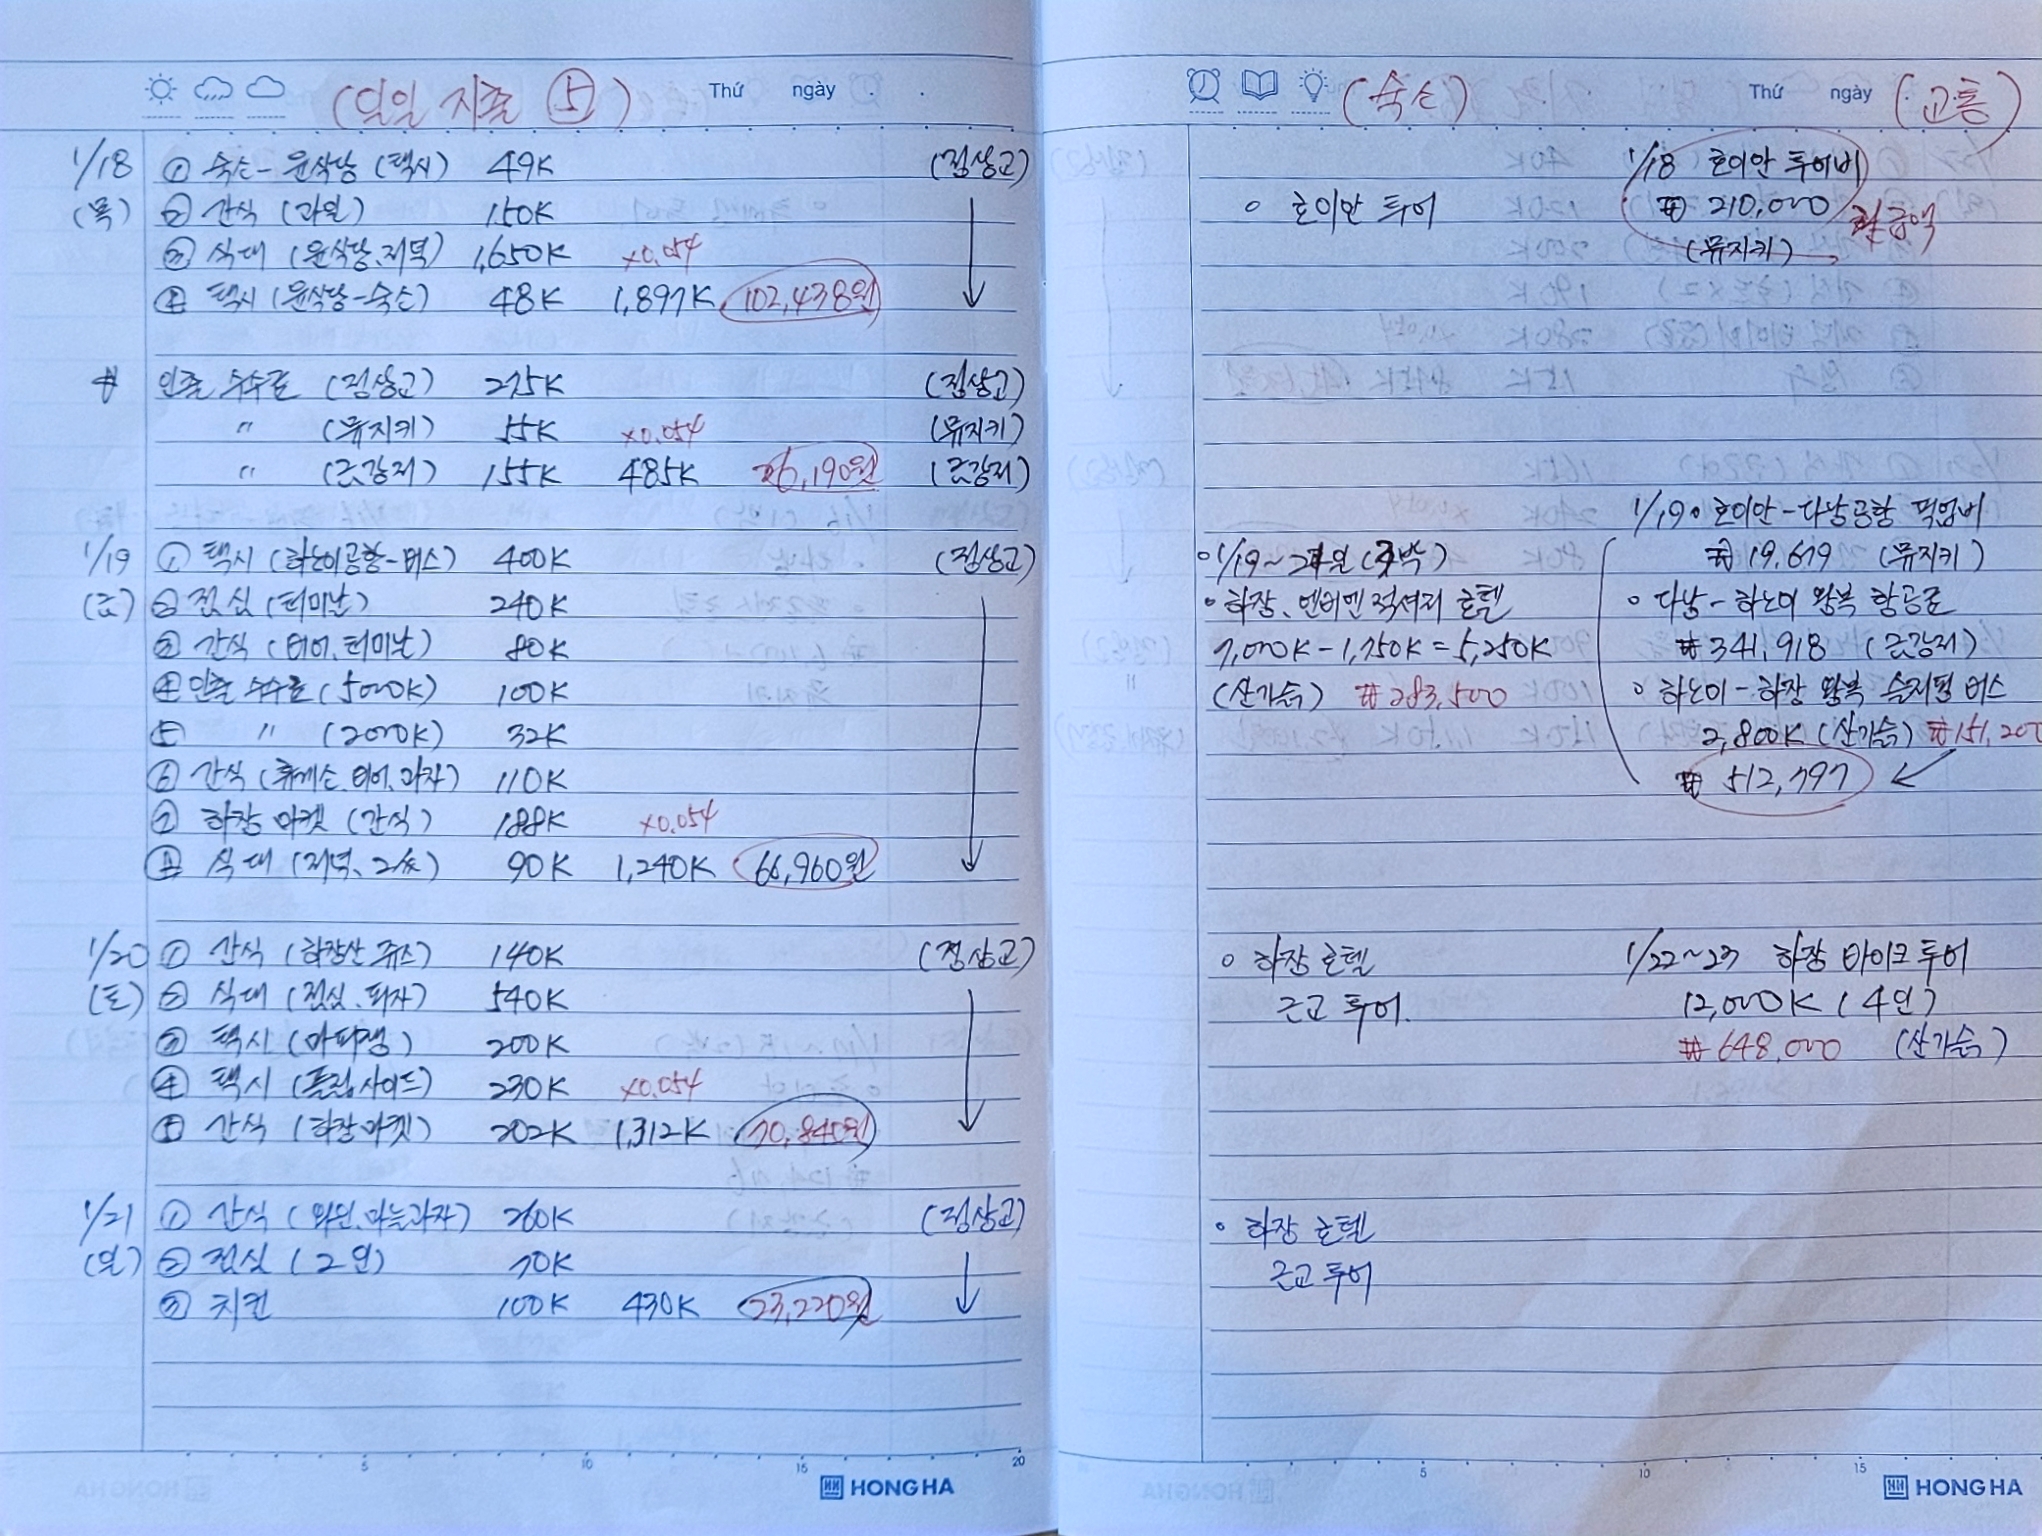 (일일 지출 ⑤)
Thứ ngày . .
1/18 ① 숙소-윤식당 (택시) 49K (정상고)
(목) ② 간식 (과일) 150K
③ 식대 (윤식당.저녁) 1,650K ×0.054
④ 택시 (윤식당-숙소) 48K 1,897K 102,438원
# 인출 수수료 (정상고) 275K (정상고)
" (뮤지키) 55K ×0.054 (뮤지키)
" (금강저) 155K 485K 26,190원 (금강저)
1/19 ① 택시 (하노이공항-버스) 400K (정상고)
(금) ② 점심 (터미날) 240K
③ 간식 (터미날) 80K
④ 인출 수수료 (5000K) 100K
⑤ " (2000K) 32K
⑥ 간식 (휴게소. 과자) 110K
⑦ 하장 마켓 (간식) 188K ×0.054
⑧ 식대 (저녁, 2人) 90K 1,240K 66,960원
1/20 ① 간식 (하장산 쥬스) 140K (정상고)
(토) ② 식대 (점심.피자) 540K
③ 택시 (마피랭) 200K
④ 택시 (플립사이드) 230K ×0.054
⑤ 간식 (하장마켓) 202K 1,312K 70,840원
1/21 ① 간식 (와인.마늘과자) 260K (정상고)
(일) ② 점심 (2인) 70K
③ 치킨 100K 430K 23,220원
5 10 15 20
HONG HA
(숙소)
Thứ ngày . (교통)
1/18 호이안 투어비
○ 호이안 투어 ₩ 210,000
(뮤지키) → 현금액
1/19 ○ 호이안-다낭공항 픽업비
○ 1/19~21일 (3박) ₩ 19,679 (뮤지키)
• 하장. 엔비엔 럭셔리 호텔 ○ 다낭-하노이 왕복 항공료
7,000K - 1,750K = 5,250K ₩ 341,918 (금강저)
(산가슴) ₩ 283,500 ○ 하노이-하장 왕복 슬리핑 버스
2,800K (산가슴) ₩151,200
₩ 512,797
○ 하장 호텔 1/22~23 하장 바이크 투어
근교 투어. 12,000K (4인)
₩ 648,000 (산가슴)
• 하장 호텔
근교 투어
5 10 15
HONG HA